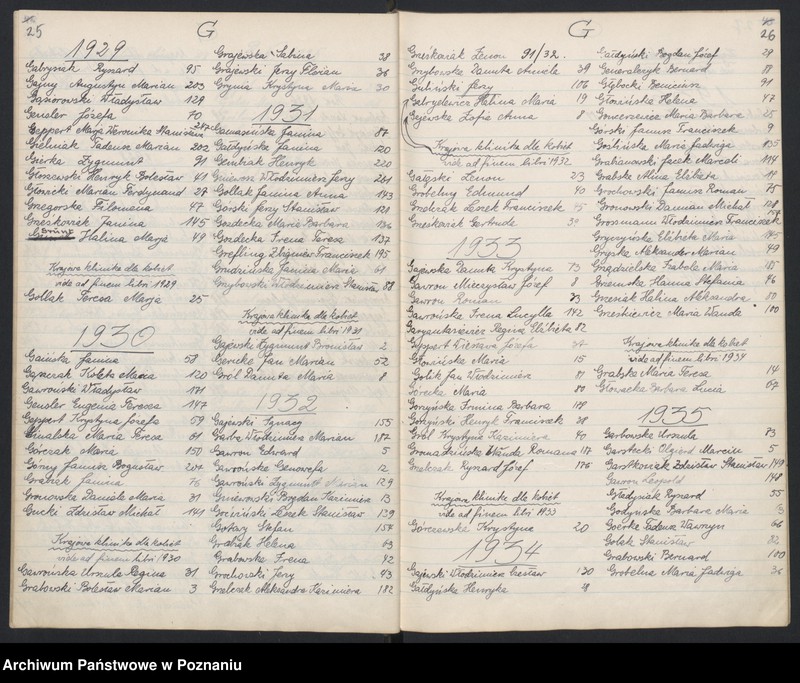 25
G
1929
Gabrysiak Ryszard 95
Gajny Augustyn Marian 203
Gąsiorowski Władysław 129
Gensler Józefa 70
Geppert Marja Weronika Stanisława 247
Gielniak Tadeusz Marian 202
Gierka Zygmunt 91
Głoszewski Henryk Bolesław 41
Głowicki Marian Ferdynand 27
Grzegorska Filomena 47
Grześkowiak Janina 145
Halina Marja 49
Krajowa klinika dla kobiet
vide ad finem libri 1929
Gollak Teresa Marja 25
1930
Gaińska Janina 58
Gąszczak Koleta Maria 120
Gawroński Władysław 171
Gensler Eugenia Teresa 147
Geppert Krystyna Józefa 59
Maria Teresa 61
Górczak Maria 150
Górny Janusz Bogusław 204
Janina 76
Gronowska Daniela Maria 31
Gucki Zdzisław Michał 141
Krajowa klinika dla kobiet
vide ad finem libri 1930
Gawrońska Urszula Regina 31
Grabowski Bolesław Marian 3
Grajewska Sabina 38
Grajewski Jerzy Florian 36
Gryma Krystyna Maria 30
1931
Janina 87
Gałdyńska Janina 120
Henryk 220
Włodzimierz Jerzy 261
Gollak Janina Anna 143
Górski Jerzy Stanisław 121
Gozdecka Maria Barbara 136
Gozdecka Irena Teresa 137
Grefling Zbigniew Franciszek 195
Grudzińska Janina Maria 61
Grzybowski Włodzimierz Stanisław 88
Krajowa klinika dla kobiet
vide ad finem libri 1931
Gajewski Zygmunt Bronisław 2
Gericke Jan Marian 52
Gról Danuta Maria 8
1932
Gajewski Ignacy 155
Garbe Włodzimierz Marian 187
Gawron Edward 5
Gawrońska Genowefa 12
Gawroński Zygmunt Marian 129
Gniewowski Bogdan Kazimierz 13
Leszek Stanisław 139
Gotzay Stefan 154
Grabiak Helena 63
Grabowska Irena 42
Grochowski Jerzy 43
Grelczak Aleksandra Kazimiera 182
G
26
Grześkowiak Zenon 91/32.
Grzybowska Danuta Aniela 39
Gubiński Jerzy 106
Gabryelewicz Halina Maria 19
Gajewska Zofia Anna 8
Krajowa klinika dla kobiet
vide ad finem libri 1932
Gałązki Zenon 23
Grobelny Edmund 40
Leszek Franciszek 45
Grześkowiak Gertruda 39
1933
Gajewska Danuta Krystyna 73
Gawron Mieczysław Józef 8
Gawron Roman 23
Gawrońska Irena Lucylla 142
Regina Elżbieta 82
Geppert Wiesława Józefa 34
Głowińska Maria 15
Golik Jan Włodzimierz 81
Górecka Maria 80
Gorzyńska Irmina Barbara 118
Gorzyński Henryk Franciszek 38
Gról Krystyna Kazimiera 40
Gromadzińska Wanda Romana 117
Grelczak Ryszard Józef 126
Krajowa klinika dla kobiet
vide ad finem libri 1933
Górczewska Krystyna 20
1934
Gajewski Włodzimierz Czesław 130
Gałdyńska Henryka
Gałdyński Bogdan Józef 29
Generalczyk Bernard
Głębocki Bonicjusz 91
Głowińska Helena 47
Goncerzewicz Maria Barbara 25
Górski Janusz Franciszek 9
Goślińska Maria Jadwiga 135
Grabianowski Jacek Marceli 114
Grabska Alina Elżbieta 19
Grochowski Janusz Roman 75
Gronowski Damian Michał 121
Grossmann Włodzimierz Franciszek
Elżbieta Maria 145
Gryska Aleksander Marian 49
Izabela Maria 185
Hanna Stefania 96
Grzesiak Halina Aleksandra 80
Grześkiewicz Maria Wanda 100
Krajowa klinika dla kobiet
vide ad finem libri 1934
Grabska Maria Teresa 14
Głowacka Barbara Lucia 67
1935
Garbowska Urszula 83
Garstecki Olgierd Marcin 5
Garstkowiak Zdzisław Stanisław 149
Gawron Leopold 148
Gładysiak Ryszard 55
Godyńska Barbara Maria 13
Goerke Tadeusz Wawrzyn 66
Golek Stanisław 82
Grabowski Bernard 100
Grobelna Maria Jadwiga 36
Archiwum Państwowe w Poznaniu